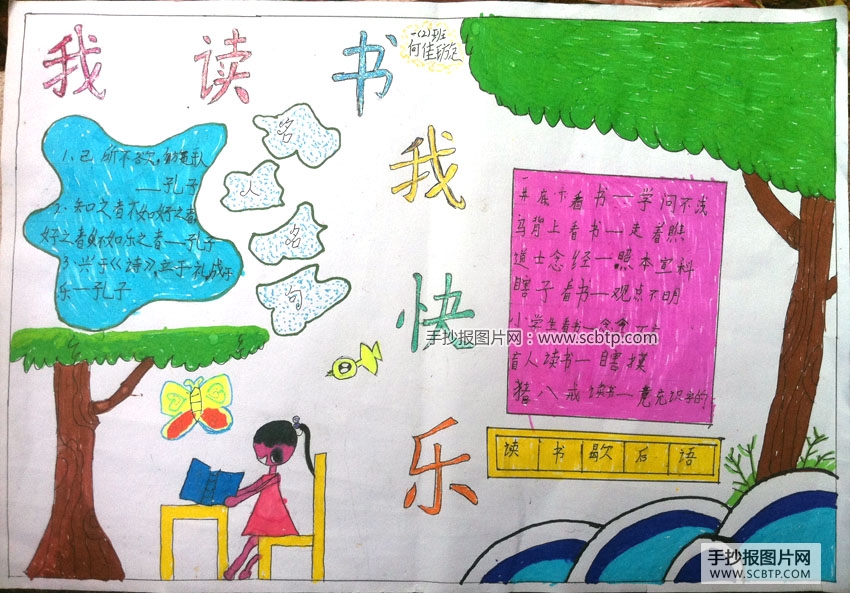 我读书
一(2)班
何佳璇
我快乐
名人名句
1、己所不欲，勿施于人
——孔子
2、知之者不如好之者
好之者不如乐之者——孔子
3、兴于《诗》，立于礼，成于
乐——孔子
井底下看书——学问不浅
马背上看书——走着瞧
道士念经——照本宣科
瞎子看书——观点不明
小学生看书——念念
手抄报图片网：www.scbtp.com
盲人读书——瞎摸
猪八戒读书——竟充识字的
读书歇后语
手抄报图片网
WWW.SCBTP.COM